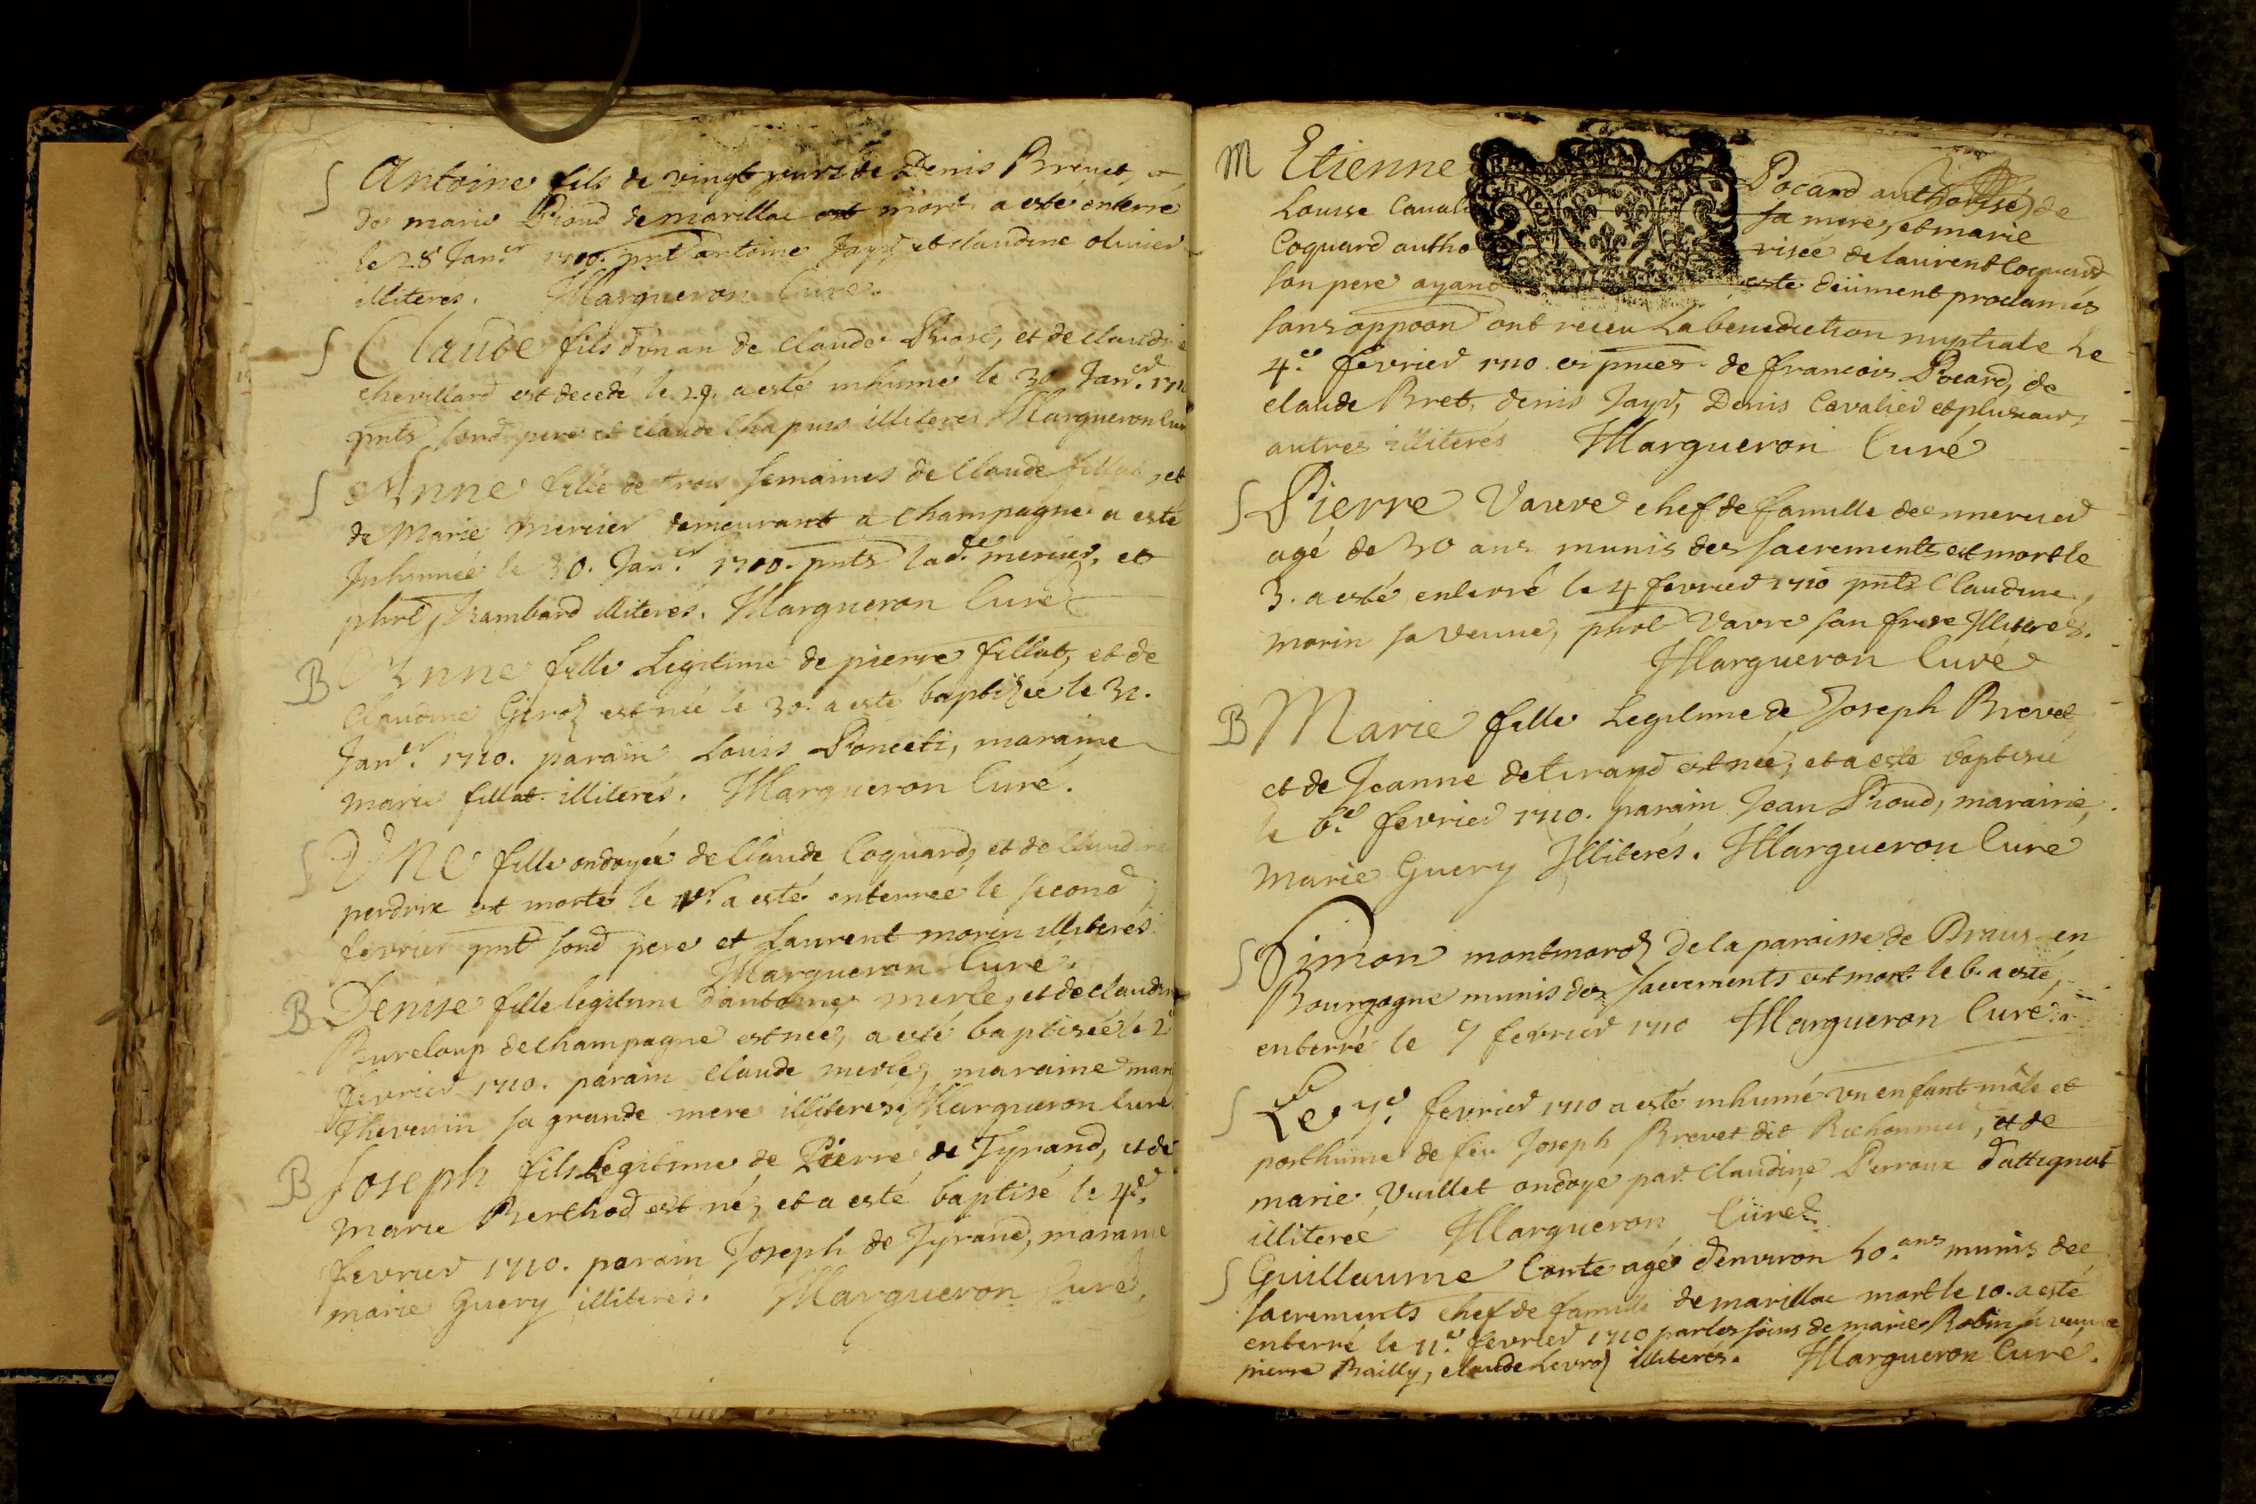 S Antoine fils de vingt jours de Denis Brevet, et
de marie Pioud de marillac est mort a esté enterré
le 28 Janer 1710. pnt antoine Jayr et claudine olivier
illiteres. Margueron Curé.
S Claude fils d'un an de claude Prost, et de claudine
chevillard est decedé le 29. a esté inhumé le 30 Janer 1710
pnts sond pere et claude Chapuis illiteres Margueron Curé
S Anne fille de trois semaines de Claude fillat, et
de Marie mercier demeurant a champagne a esté
Inhumée le 30. Janr 1710. pnts lad.e mercier, et
phrt Trambard illiteres. Margueron Curé
B Anne fille Legitime de pierre fillat, et de
Claudine Giroz est née le 30. a esté baptizée le 31.
Janr. 1710. parain Louis Ponceti, maraine
marie fillat illiterés. Margueron Curé.
S Une fille ondoyée de Claude Coquard, et de Claudine
perdrix est morte le 1r. a esté enterrée le second
fevrier pnt sond pere et Laurent morin illiterés.
Margueron Curé.
B Denise fille legitime d'antoine merle, et de claudine
Bureloup de champagne est née, a esté baptisée le 2e
fevrier 1710. parain claude merle, maraine marie
Thevenin sa grande mere illiteres. Margueron Curé
B Joseph fils Legitime de Pierre de Tyrand, et de
marie Berthod est né, et a esté baptisé le 4e.
fevrier 1710. parain Joseph de Tyrand, maraine
marie Guery illiterés. Margueron Curé.
M Etienne Pocard authorisé de
Louise Caval sa mere, et marie
Coquard autho risée de laurent Coquard
son pere ayant esté deüment proclamés
sans oppoon ont receu La benediction nuptiale Le
4.e février 1710. es pnces de francois Pocard, de
claude Bret, denis Jayr, Denis Cavalier et plusieurs
autres illiterés Margueron Curé
S Pierre Vavre chef de famille de mercier
agé de 30 ans munis des sacrements est mort le
3. a esté enterré le 4 fevrier 1710 pnts Claudine
morin sa veuve, phrt Vavre son frere Illiterés.
Margueron Curé
B Marie fille Legitime de Joseph Brevet
et de Jeanne de tirand est née, et a esté baptisée
le 6.e fevrier 1710. parain Jean Pioud, maraine,
marie Guery Illiterés. Margueron Curé
S Simon montmord de la paroisse de Braus en
Bourgogne munis des sacrements est mort le 6. a esté,
enterré le 7 fevrier 1710 Margueron Curé.
S Le 7e. fevrier 1710 a esté inhumé un enfant mâle et
posthume de feu Joseph Brevet dit Richonnier, et de
marie Vuillet ondoyé par Claudine Perraux d'attignat
illiteree Margueron Curé
S Guillaume Conte agé d'environ 50. ans munis des
sacrements chef de famille de marillac mort le 10. a esté
enterré le 11.e fevrier 1710 par les soins de marie Robin sa veuve
pierre Bailly, claude Levroz illiterés. Margueron Curé.